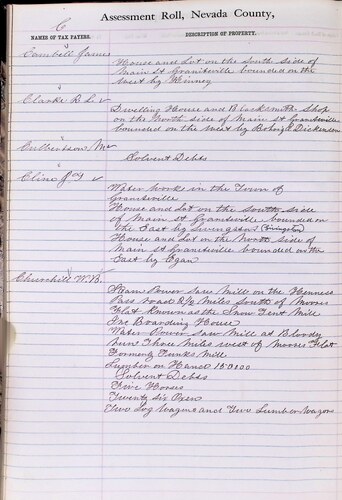 Assessment Roll, Nevada County,
C
NAMES OF TAX PAYERS.
DESCRIPTION OF PROPERTY.
Cambell James
House and Lot on the South side of
Main St Graniteville bounded on the
West by Kinney
Clarke R. L.
Dwelling House and Blacksmith Shop
on the North side of Main St Graniteville
bounded on the west by Dickerson
Culbertson
Solvent Debts
Cline
Water works in the Town of
Graniteville
House and Lot on the South side
of Main St Graniteville bounded on
the East by Livingston (Livingston)
House and Lot on the North side of
Main St Graniteville bounded on the
East by Egan
Churchill W.B.
Steam Power Saw Mill on the Henness
Pass road Miles South of Moores
Flat Known as the Snow Tent Mill
Boarding House
Water Power Saw Mill at Bloody
Run Three Miles west of Moores Flat
Formerly Funks Mill
Lumber on Hand 150000
Solvent Debts
Five Horses
Twenty six Oxen
Two Log Wagons and Two Lumber Wagons